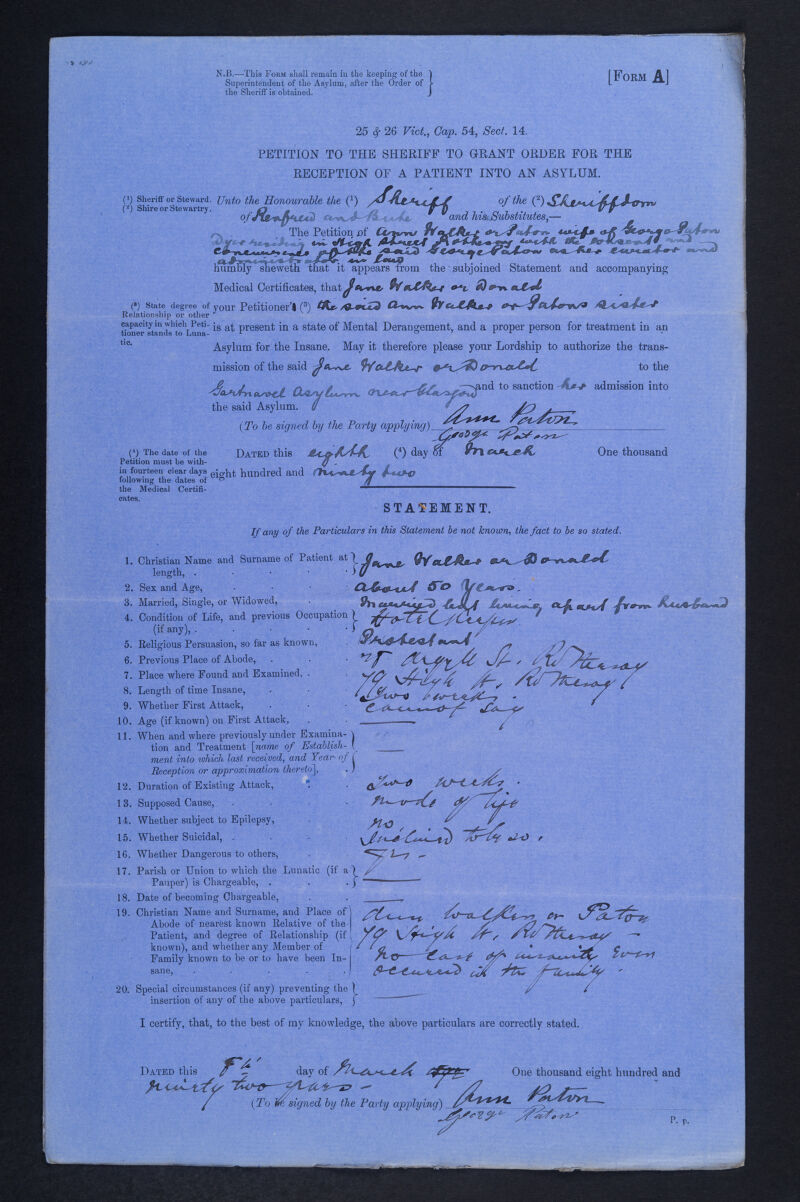 N.B.—This Form shall remain in the keeping of the
Superintendent of the Asylum, after the Order of
the Sheriff is obtained.
[Form A]
25 & 26 Vict., Cap. 54, Sect. 14.
PETITION TO THE SHERIFF TO GRANT ORDER FOR THE
RECEPTION OF A PATIENT INTO AN ASYLUM.
(¹) Sheriff or Steward.
(²) Shire or Stewartry.
Unto the Honourable the (¹) Sheriff of the (²) Sheriffdom
of Renfrew and Bute and his Substitutes,—
The Petition of Ann Walker or Paton wife of George Paton
Dyer residing in High Street Rothesay with the consent and
concurrence of the said George Paton as her curator and
administrator in law
humbly sheweth that it appears from the subjoined Statement and accompanying
Medical Certificates, that Jane Walker or Donald
(³) State degree of
Relationship or other
capacity in which Peti-
tioner stands to Luna-
tic.
your Petitioner's (³) the said Ann Walker or Paton's sister
is at present in a state of Mental Derangement, and a proper person for treatment in an
Asylum for the Insane. May it therefore please your Lordship to authorize the trans-
mission of the said Jane Walker or Donald to the
Gartnavel Asylum near Glasgow and to sanction her admission into
the said Asylum.
(To be signed by the Party applying) Ann Paton
George Paton
(⁴) The date of the
Petition must be with-
in fourteen clear days
following the dates of
the Medical Certifi-
cates.
Dated this eighth (⁴) day of March One thousand
eight hundred and ninety two
STATEMENT.
If any of the Particulars in this Statement be not known, the fact to be so stated.
1. Christian Name and Surname of Patient at
length, . Jane Walker or Donald
2. Sex and Age, about 50 Years.
3. Married, Single, or Widowed, Married but living apart from husband
4. Condition of Life, and previous Occupation
(if any), . Hotel Keeper
5. Religious Persuasion, so far as known, Protestant
6. Previous Place of Abode, . Argyll St, Rothesay
7. Place where Found and Examined. . 79 High St, Rothesay
8. Length of time Insane, Two weeks.
9. Whether First Attack, cannot say
10. Age (if known) on First Attack,
11. When and where previously under Examina-
tion and Treatment [name of Establish-
ment into which last received, and Year of
Reception or approximation thereto],
12. Duration of Existing Attack, Two weeks.
13. Supposed Cause, mode of life
14. Whether subject to Epilepsy, no
15. Whether Suicidal, . Inclined to be so.
16. Whether Dangerous to others, yes -
17. Parish or Union to which the Lunatic (if a
Pauper) is Chargeable, .
18. Date of becoming Chargeable,
19. Christian Name and Surname, and Place of
Abode of nearest known Relative of the
Patient, and degree of Relationship (if
known), and whether any Member of
Family known to be or to have been In-
sane,
Ann Walker or Paton
79 High St, Rothesay -
No case of insanity ever
occurred in the family.
20. Special circumstances (if any) preventing the
insertion of any of the above particulars,
I certify, that, to the best of my knowledge, the above particulars are correctly stated.
Dated this 8th day of March One thousand eight hundred and
ninety two years -
(To be signed by the Party applying) Ann Paton
George Paton
P. p.